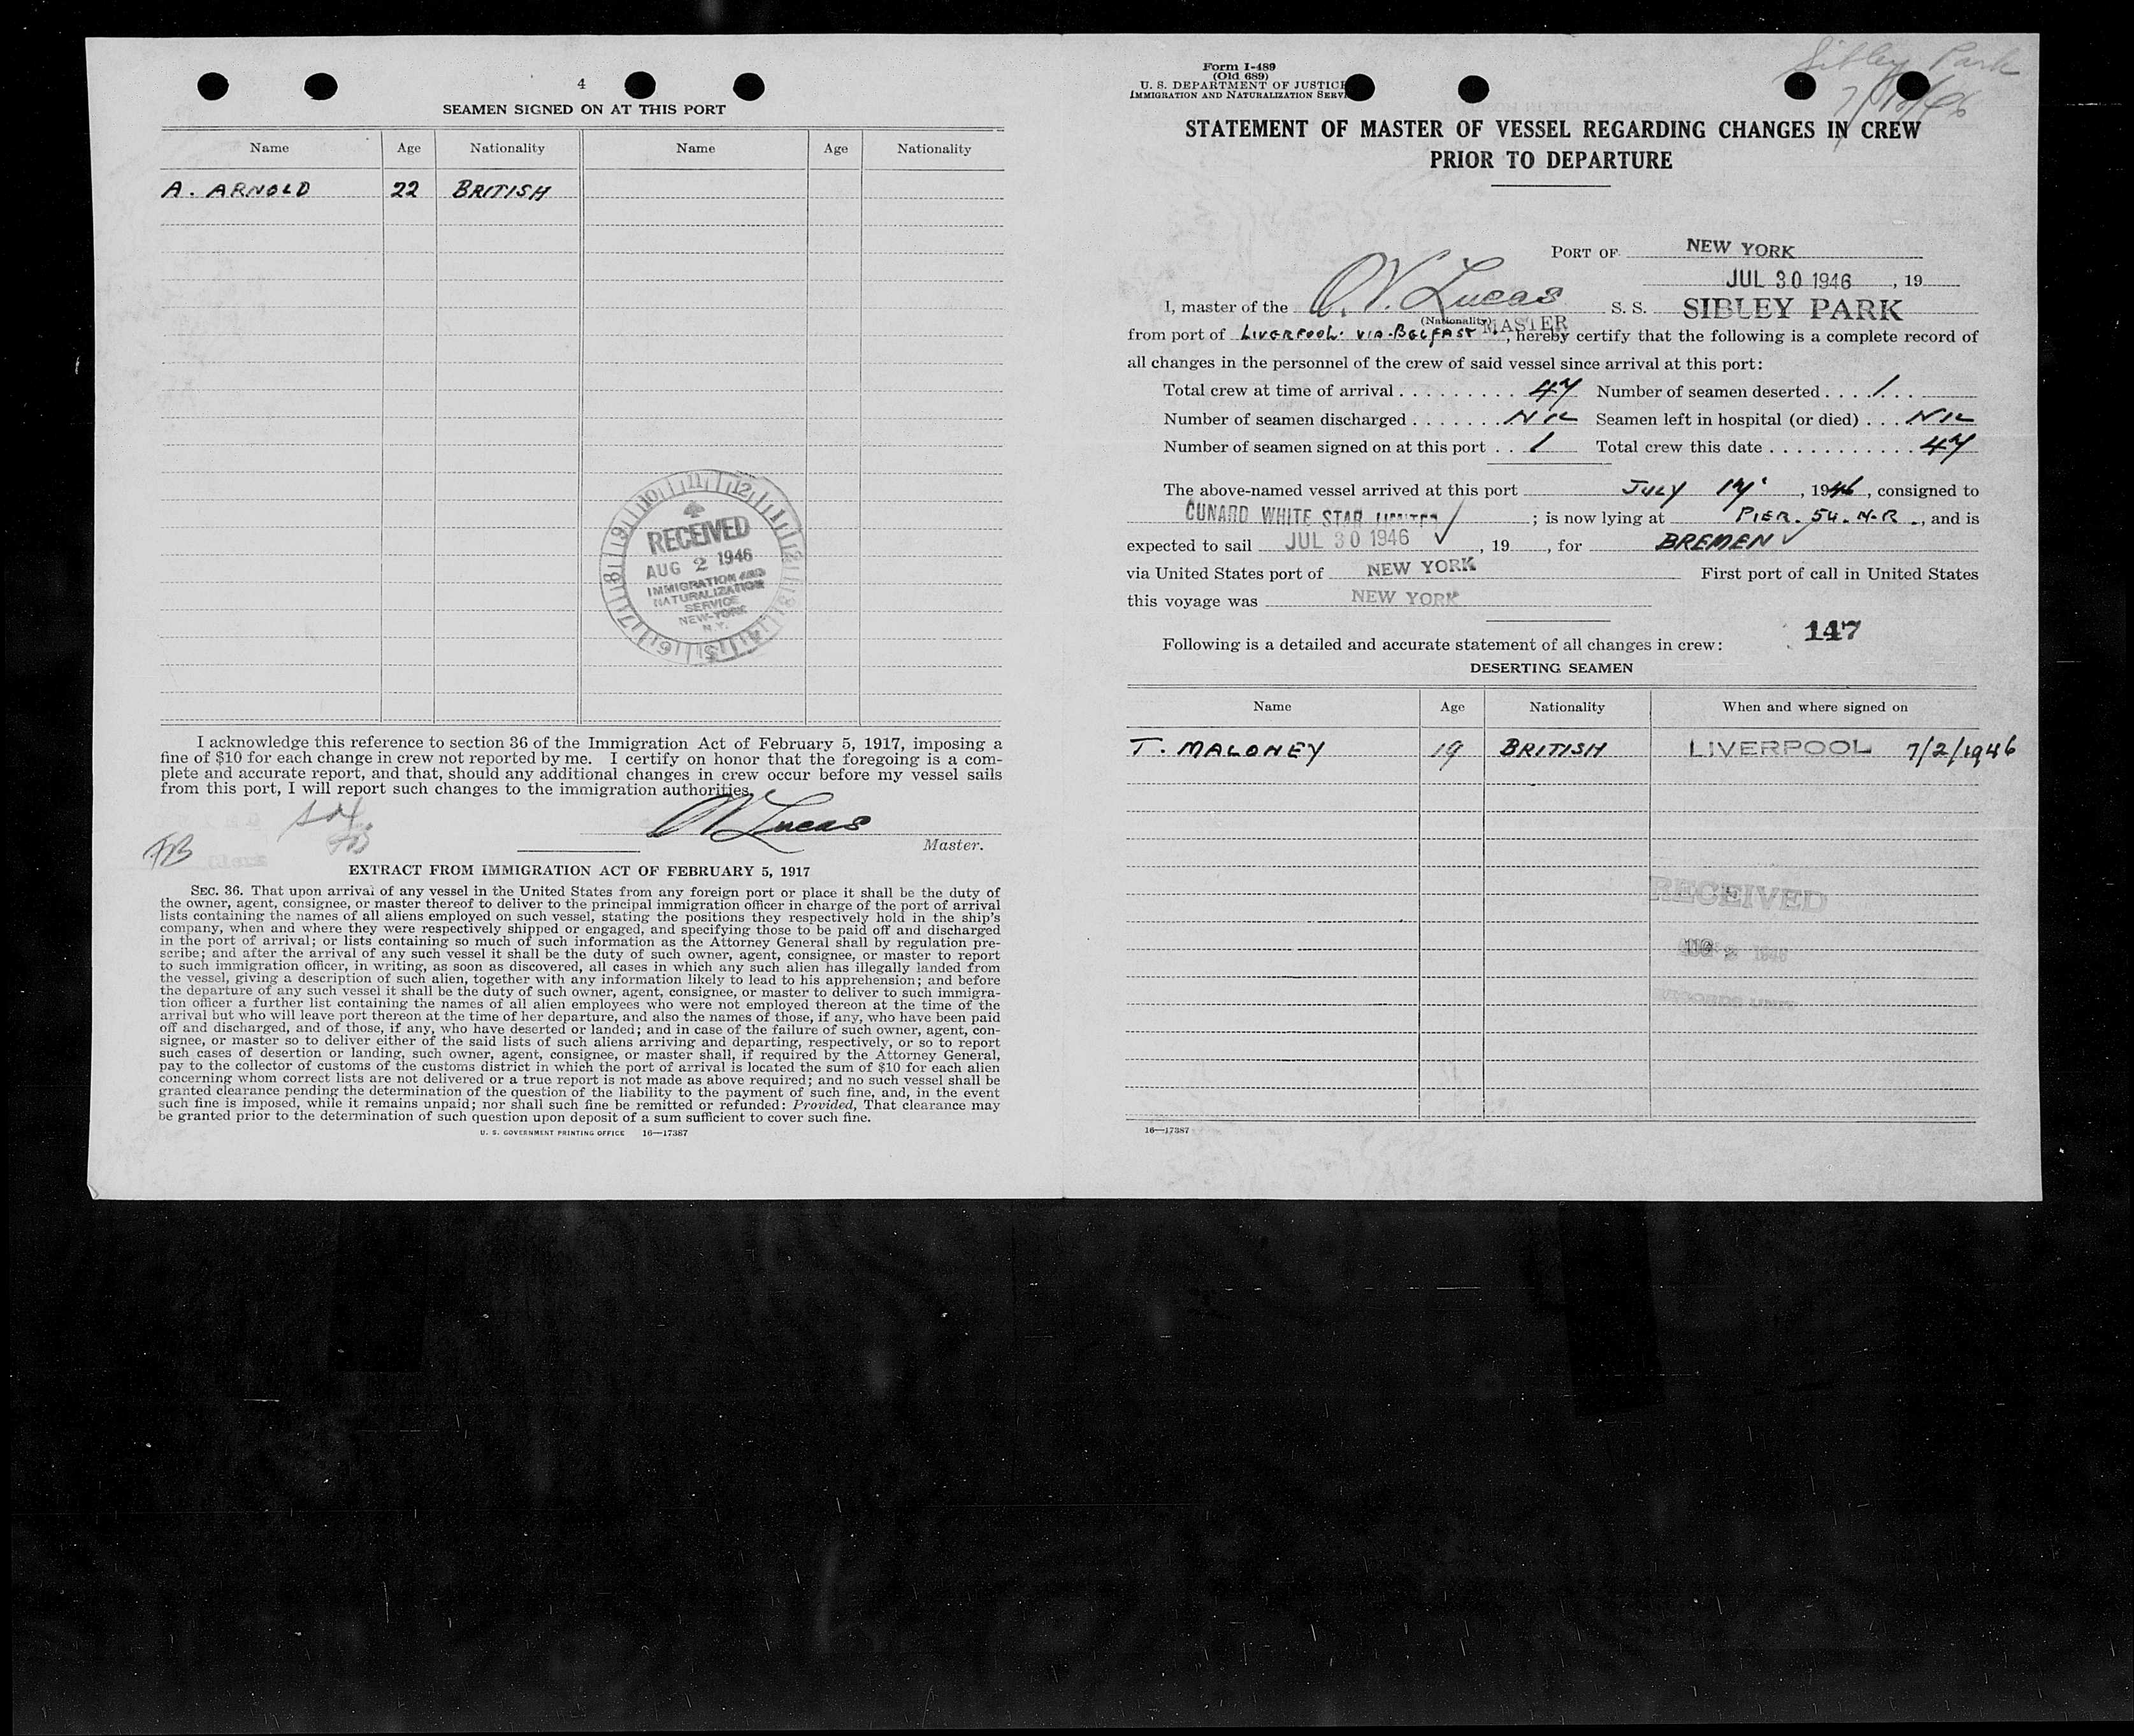 4
SEAMEN SIGNED ON AT THIS PORT
Name Age Nationality Name Age Nationality
A. ARNOLD 22 BRITISH
RECEIVED
AUG 2 1946
IMMIGRATION AND
NATURALIZATION
SERVICE
NEW-YORK
N.Y.
I acknowledge this reference to section 36 of the Immigration Act of February 5, 1917, imposing a
fine of $10 for each change in crew not reported by me. I certify on honor that the foregoing is a com-
plete and accurate report, and that, should any additional changes in crew occur before my vessel sails
from this port, I will report such changes to the immigration authorities.
O V Lucas
FB
Master.
EXTRACT FROM IMMIGRATION ACT OF FEBRUARY 5, 1917
SEC. 36. That upon arrival of any vessel in the United States from any foreign port or place it shall be the duty of
the owner, agent, consignee, or master thereof to deliver to the principal immigration officer in charge of the port of arrival
lists containing the names of all aliens employed on such vessel, stating the positions they respectively hold in the ship's
company, when and where they were respectively shipped or engaged, and specifying those to be paid off and discharged
in the port of arrival; or lists containing so much of such information as the Attorney General shall by regulation pre-
scribe; and after the arrival of any such vessel it shall be the duty of such owner, agent, consignee, or master to report
to such immigration officer, in writing, as soon as discovered, all cases in which any such alien has illegally landed from
the vessel, giving a description of such alien, together with any information likely to lead to his apprehension; and before
the departure of any such vessel it shall be the duty of such owner, agent, consignee, or master to deliver to such immigra-
tion officer a further list containing the names of all alien employees who were not employed thereon at the time of the
arrival but who will leave port thereon at the time of her departure, and also the names of those, if any, who have been paid
off and discharged, and of those, if any, who have deserted or landed; and in case of the failure of such owner, agent, con-
signee, or master so to deliver either of the said lists of such aliens arriving and departing, respectively, or so to report
such cases of desertion or landing, such owner, agent, consignee, or master shall, if required by the Attorney General,
pay to the collector of customs of the customs district in which the port of arrival is located the sum of $10 for each alien
concerning whom correct lists are not delivered or a true report is not made as above required; and no such vessel shall be
granted clearance pending the determination of the question of the liability to the payment of such fine, and, in the event
such fine is imposed, while it remains unpaid; nor shall such fine be remitted or refunded: Provided, That clearance may
be granted prior to the determination of such question upon deposit of a sum sufficient to cover such fine.
U. S. GOVERNMENT PRINTING OFFICE 16—17387
Form I-489
(Old 689)
U. S. DEPARTMENT OF JUSTICE
IMMIGRATION AND NATURALIZATION SERVI
Sibley Park
STATEMENT OF MASTER OF VESSEL REGARDING CHANGES IN CREW
PRIOR TO DEPARTURE
PORT OF NEW YORK
JUL 30 1946, 19
I, master of the O. V. Lucas S. S. SIBLEY PARK
(Nationality) MASTER
from port of LIVERPOOL. VIA-BELFAST., hereby certify that the following is a complete record of
all changes in the personnel of the crew of said vessel since arrival at this port:
Total crew at time of arrival . . . . . . . . . 47 Number of seamen deserted . . . 1 . .
Number of seamen discharged . . . . . . . NIL Seamen left in hospital (or died) . . . NIL
Number of seamen signed on at this port . . 1 Total crew this date . . . . . . . . . . . 47
The above-named vessel arrived at this port JULY 17, 1946, consigned to
CUNARD WHITE STAR LIMITED; is now lying at PIER. 54. N.R., and is
expected to sail JUL 30 1946, 19, for BREMEN
via United States port of NEW YORK First port of call in United States
this voyage was NEW YORK
147
Following is a detailed and accurate statement of all changes in crew:
DESERTING SEAMEN
Name Age Nationality When and where signed on
T. MALONEY 19 BRITISH LIVERPOOL 7/2/1946
RECEIVED
AUG 2 1946
RECORDS UNIT
16—17387